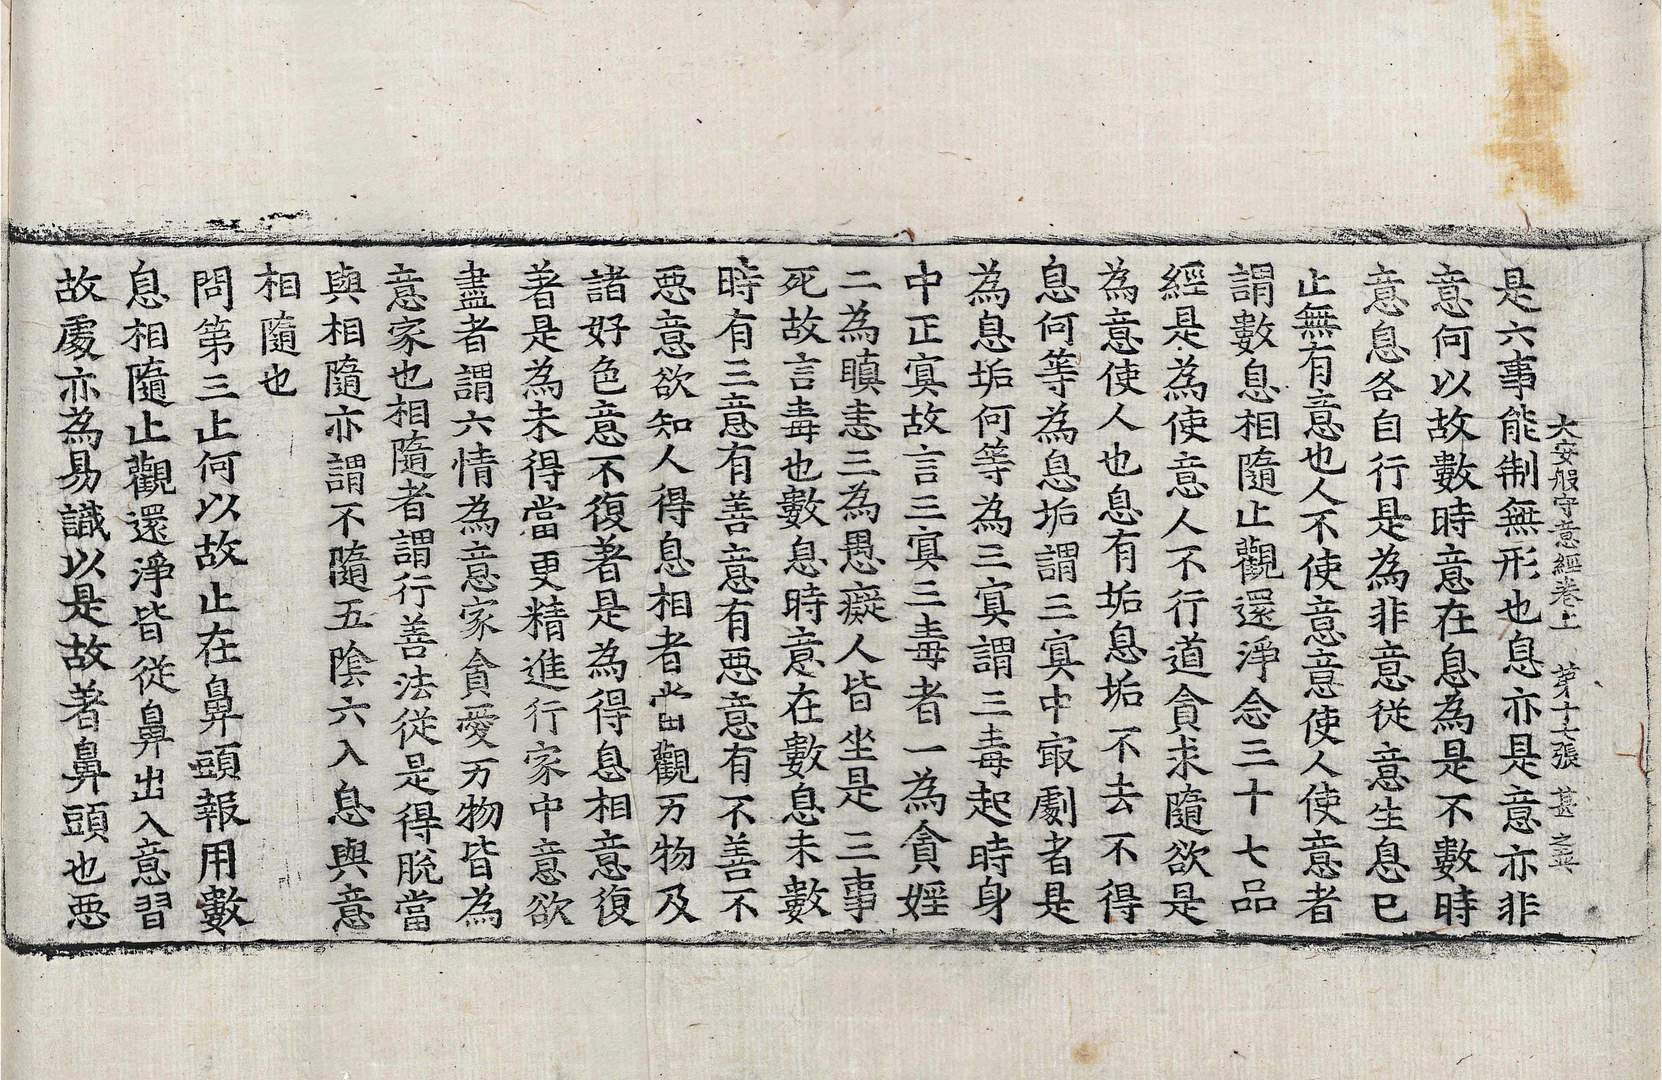 大安般守意經卷上　第十七張　甚　之兴
是六事能制無形也息亦是意亦非
意何以故數時意在息為是不數時
意息各自行是為非意從意生息已
止無有意也人不使意意使人使意者
謂數息相隨止觀還淨念三十七品
經是為使意人不行道貪求隨欲是
為意使人也息有垢息垢不去不得
息何等為息垢謂三㝠中㝡劇者是
為息垢何等為三㝠謂三毒起時身
中正㝠故言三㝠三毒者一為貪婬
二為瞋恚三為愚癡人皆坐是三事
死故言毒也數息時意在數息未數
時有三意有善意有惡意有不善不
惡意欲知人得息相者當觀万物及
諸好色意不復著是為得息相意復
著是為未得當更精進行家中意欲
盡者謂六情為意家貪愛万物皆為
意家也相隨者謂行善法從是得脫當
與相隨亦謂不隨五陰六入息與意
相隨也
問第三止何以故止在鼻頭報用數
息相隨止觀還淨皆從鼻出入意習
故處亦為易識以是故著鼻頭也惡